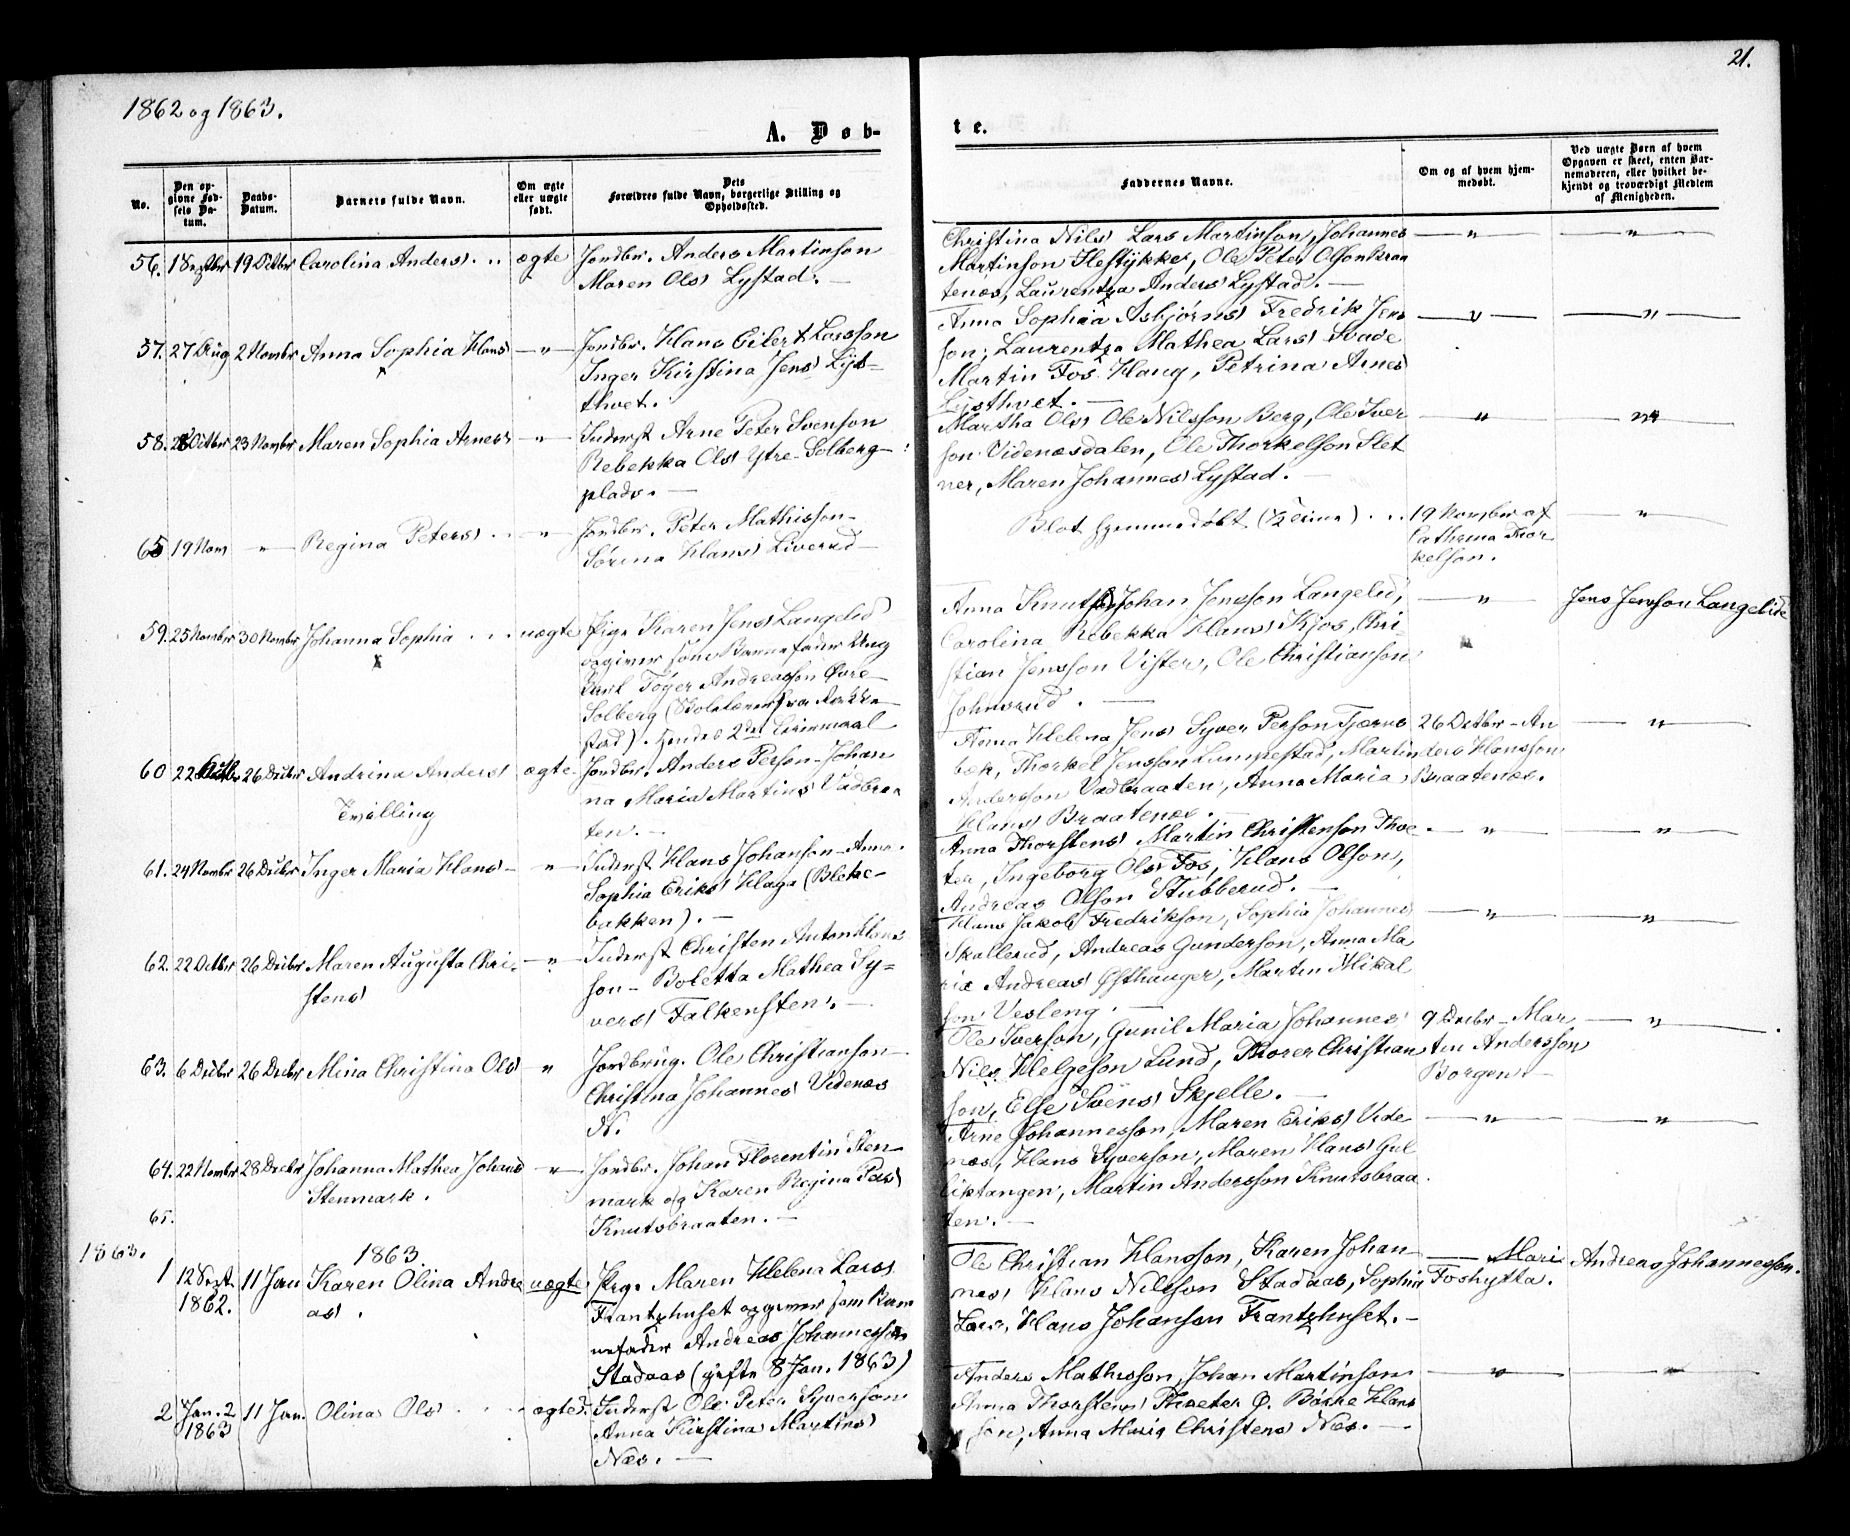 21.
1862 og 1863.
A. Døb-
te.
No.
Den op-
givne Fød-
sels Da-
tum.
Daabs-
Datum.
Barnets fulde Navn.
Om ægte
eller uægte
født.
Dets
Forældres fulde Navn, borgerlige Stilling og
Opholdssted.
Faddernes Navne.
Om og af hvem hjem-
medøbt.
Ved uægte Børn af hvem
Opgaven er skeet, enten Bar-
nemoderen, eller hvilket be-
kjendt og troværdigt Medlem
af Menigheden.
56. 1 Septbr 19 Octbr Carolina Andersd ægte
Jordbr. Anders Martinson
Maren Olsd Lystad. —
Christina Nilsd Lars Martinson, Johannes
Martinson Slestykket, Ole Peter Olson Braa
tenæs, Laurentza Andersd Lystad. —
— " — — " —
57. 27 Aug 2 Novmbr Anna Sophia Hansd — " —
Jordbr. Hans Eilert Larsson
Inger Kirstina Jensd Lyst-
thvet.
Anna Sophia Asbjørnsd Fredrik Jens
son, Laurentza Mathea Larsd Svade
Martin Fos. Haug, Petrina Arnesd
Lysthvet. —
— " — — " —
58. 28 Octbr 23 Novmbr Maren Sophia Arnesd — " —
Inderst Arne Peter Svenson
Rebekka Olsd Ytre-Solberg-
plads. —
Martha Olsd Ole Nilsson Berg, Ole Iver
son Videnæsdalen, Ole Thorkelson Slet
ner, Maren Johannesd Lystad. —
— " — — " —
65 19 Nov — " — Regina Petersd — " —
Jordbr. Peter Mathisson-
Sørina Hansd Liverud —
Blot hjemmedøbt (½ time)
19 Novmber af
Cathrina Thor
kelson.
— " —
59. 25 Novmbr 30 Novmbr Johanna Sophia uægte
Pige Karen Jensd Langelid
opgiver som Barnefader Ung
karl Tøger Andreasson Øvre
Solberg (Skolelærer fra Rakke
stad). Hendes 2det Leiermaal
Anna Knutsd, Johan Jensson Langelid,
Carolina Rebekka Hansd Kjos, Chri-
stian Jensson Vister, Ole Christianson
Johnsrud. —
— " — Jens Jensson Langelide
60 22 Octbr 26 Decbr Andrina Andersd ægte
Tvilling
Jordbr. Anders Person-Johan
na Maria Martinsd Vadbraa
ten. —
Anna Helena Jensd Syver Person Tjærns
bæk, Thorkel Jensson Lumpestad, Martin
Andersson Vadbraaten, Anna Maria
Hansd Braatenæs. —
26 Octbr - An
ders Hansson
Braatenæs.
— " —
61. 24 Novmbr 26 Decbr Inger Maria Hansd — " —
Inderst Hans Johanson - Anna
Sophia Eriksd Haga (Bleke-
bakken). —
Anna Thorstensd Martin Christenson Thve
ter, Ingeborg Olsd Fos, Hans Olson,
Andreas Olson Stubberud. —
— " — — " —
62. 22 Octbr 26 Decbr Maren Augusta Chri- — " —
stensd
Inderst Christen Anton Hans
son - Boletta Mathea Sy-
versd Falkensten. —
Hans Jakob Fredrikson, Sophia Johannesd
Skallerud, Andreas Gunderson, Anna Ma
ria Andreasd Østhauger, Martin Mikal
son Vesleng. —
— " — — " —
63. 6 Decbr 26 Decbr Mina Christina Olsd — " —
Jordbrug. Ole Christianson -
Christina Johannesd Videnæs
N.
Ole Iverson, Gunil Maria Johannesd
Nils Helgeson Lund, Thorer Christian
son, Else Svensd Skjelle. —
9 Decbr - Mar
tin Andersson
Borgen. —
— " —
64. 22 Novmbr 28 Decbr Johanna Mathea Johansd — " —
Stenmark.
Jordbr. Johan Florentin Sten-
mark og Karen Regina Persd
Knutsbraaten. —
Arne Johannesson, Maren Eriksd Vide
næs, Hans Syverson, Maren Hansd Gul
liktangen, Martin Andersson Knutsbraa
ten. —
— " — — " —
65.
1863.
1863.
1 12 Sept. 11 Jan Karen Olina Andre uægte
1862.
asd.
Pige Maren Helena Larsd
Frantzhuset opgiver som Barn
nefader Andreas Johannesson
Stadaas (gifte 8 Jan. 1863)
Ole Christian Hansson, Karen Johan-
nesd Hans Nilsson Stadaas, Sophia
Larsd, Hans Johanson Frantzhuset. —
— Mari
Foshytta.
Andreas Johannesson.
2 Jan. 2 11 Jan. Olina Olsd ægte
1863
Inderst Ole Peter Syverson
Anna Kirstina Martinsd
Næs. —
Anders Mathisson, Johan Martinson
Anna Thorstensd Thveter Ø. Børre Hans
son, Anna Maria Christensd Næs. —
— " — — " —